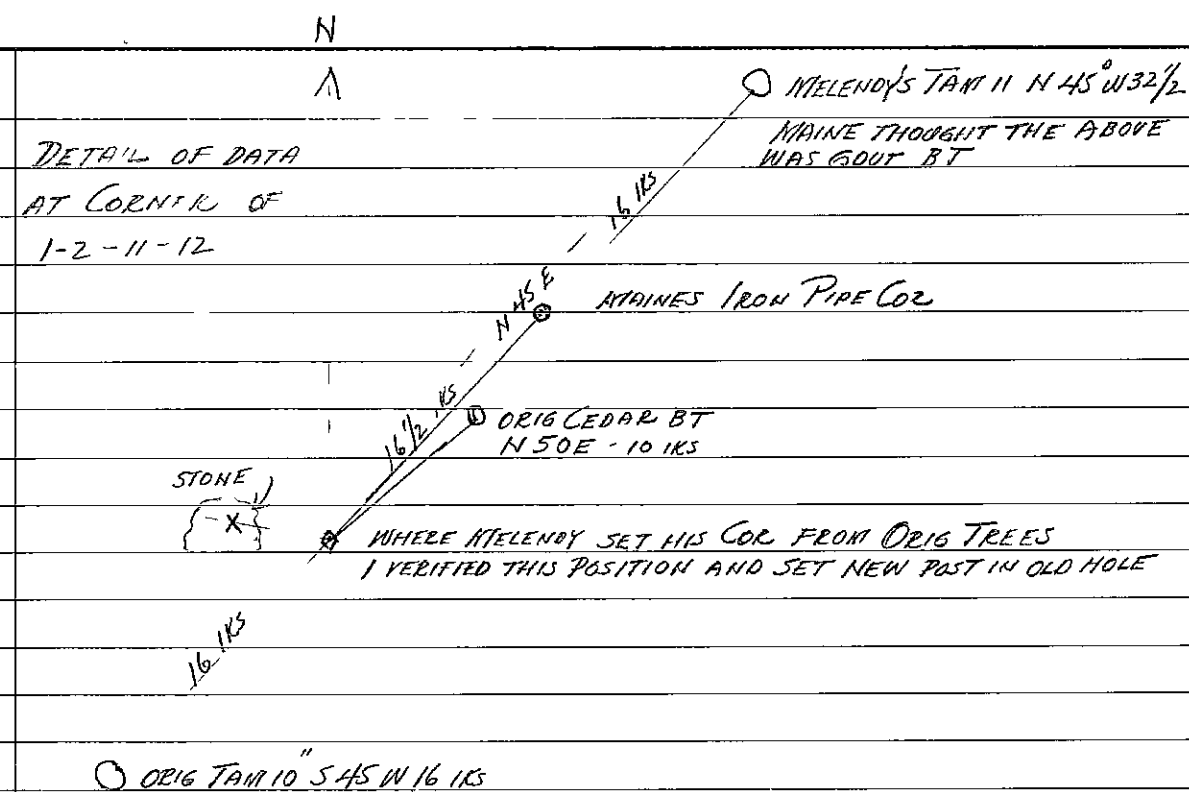 N
MELENDY'S TAM 11 N 45° W 32 1/2
MAINE THOUGHT THE ABOVE
WAS GOVT BT
DETAIL OF DATA
AT CORNER OF
1-2-11-12
16 LKS
N 45 E
MAINES IRON PIPE COR
16 1/2 LKS
ORIG CEDAR BT
N 50 E - 10 LKS
STONE
X
WHERE MELENDY SET HIS COR FROM ORIG TREES
I VERIFIED THIS POSITION AND SET NEW POST IN OLD HOLE
16 LKS
ORIG TAM 10" S 45 W 16 LKS